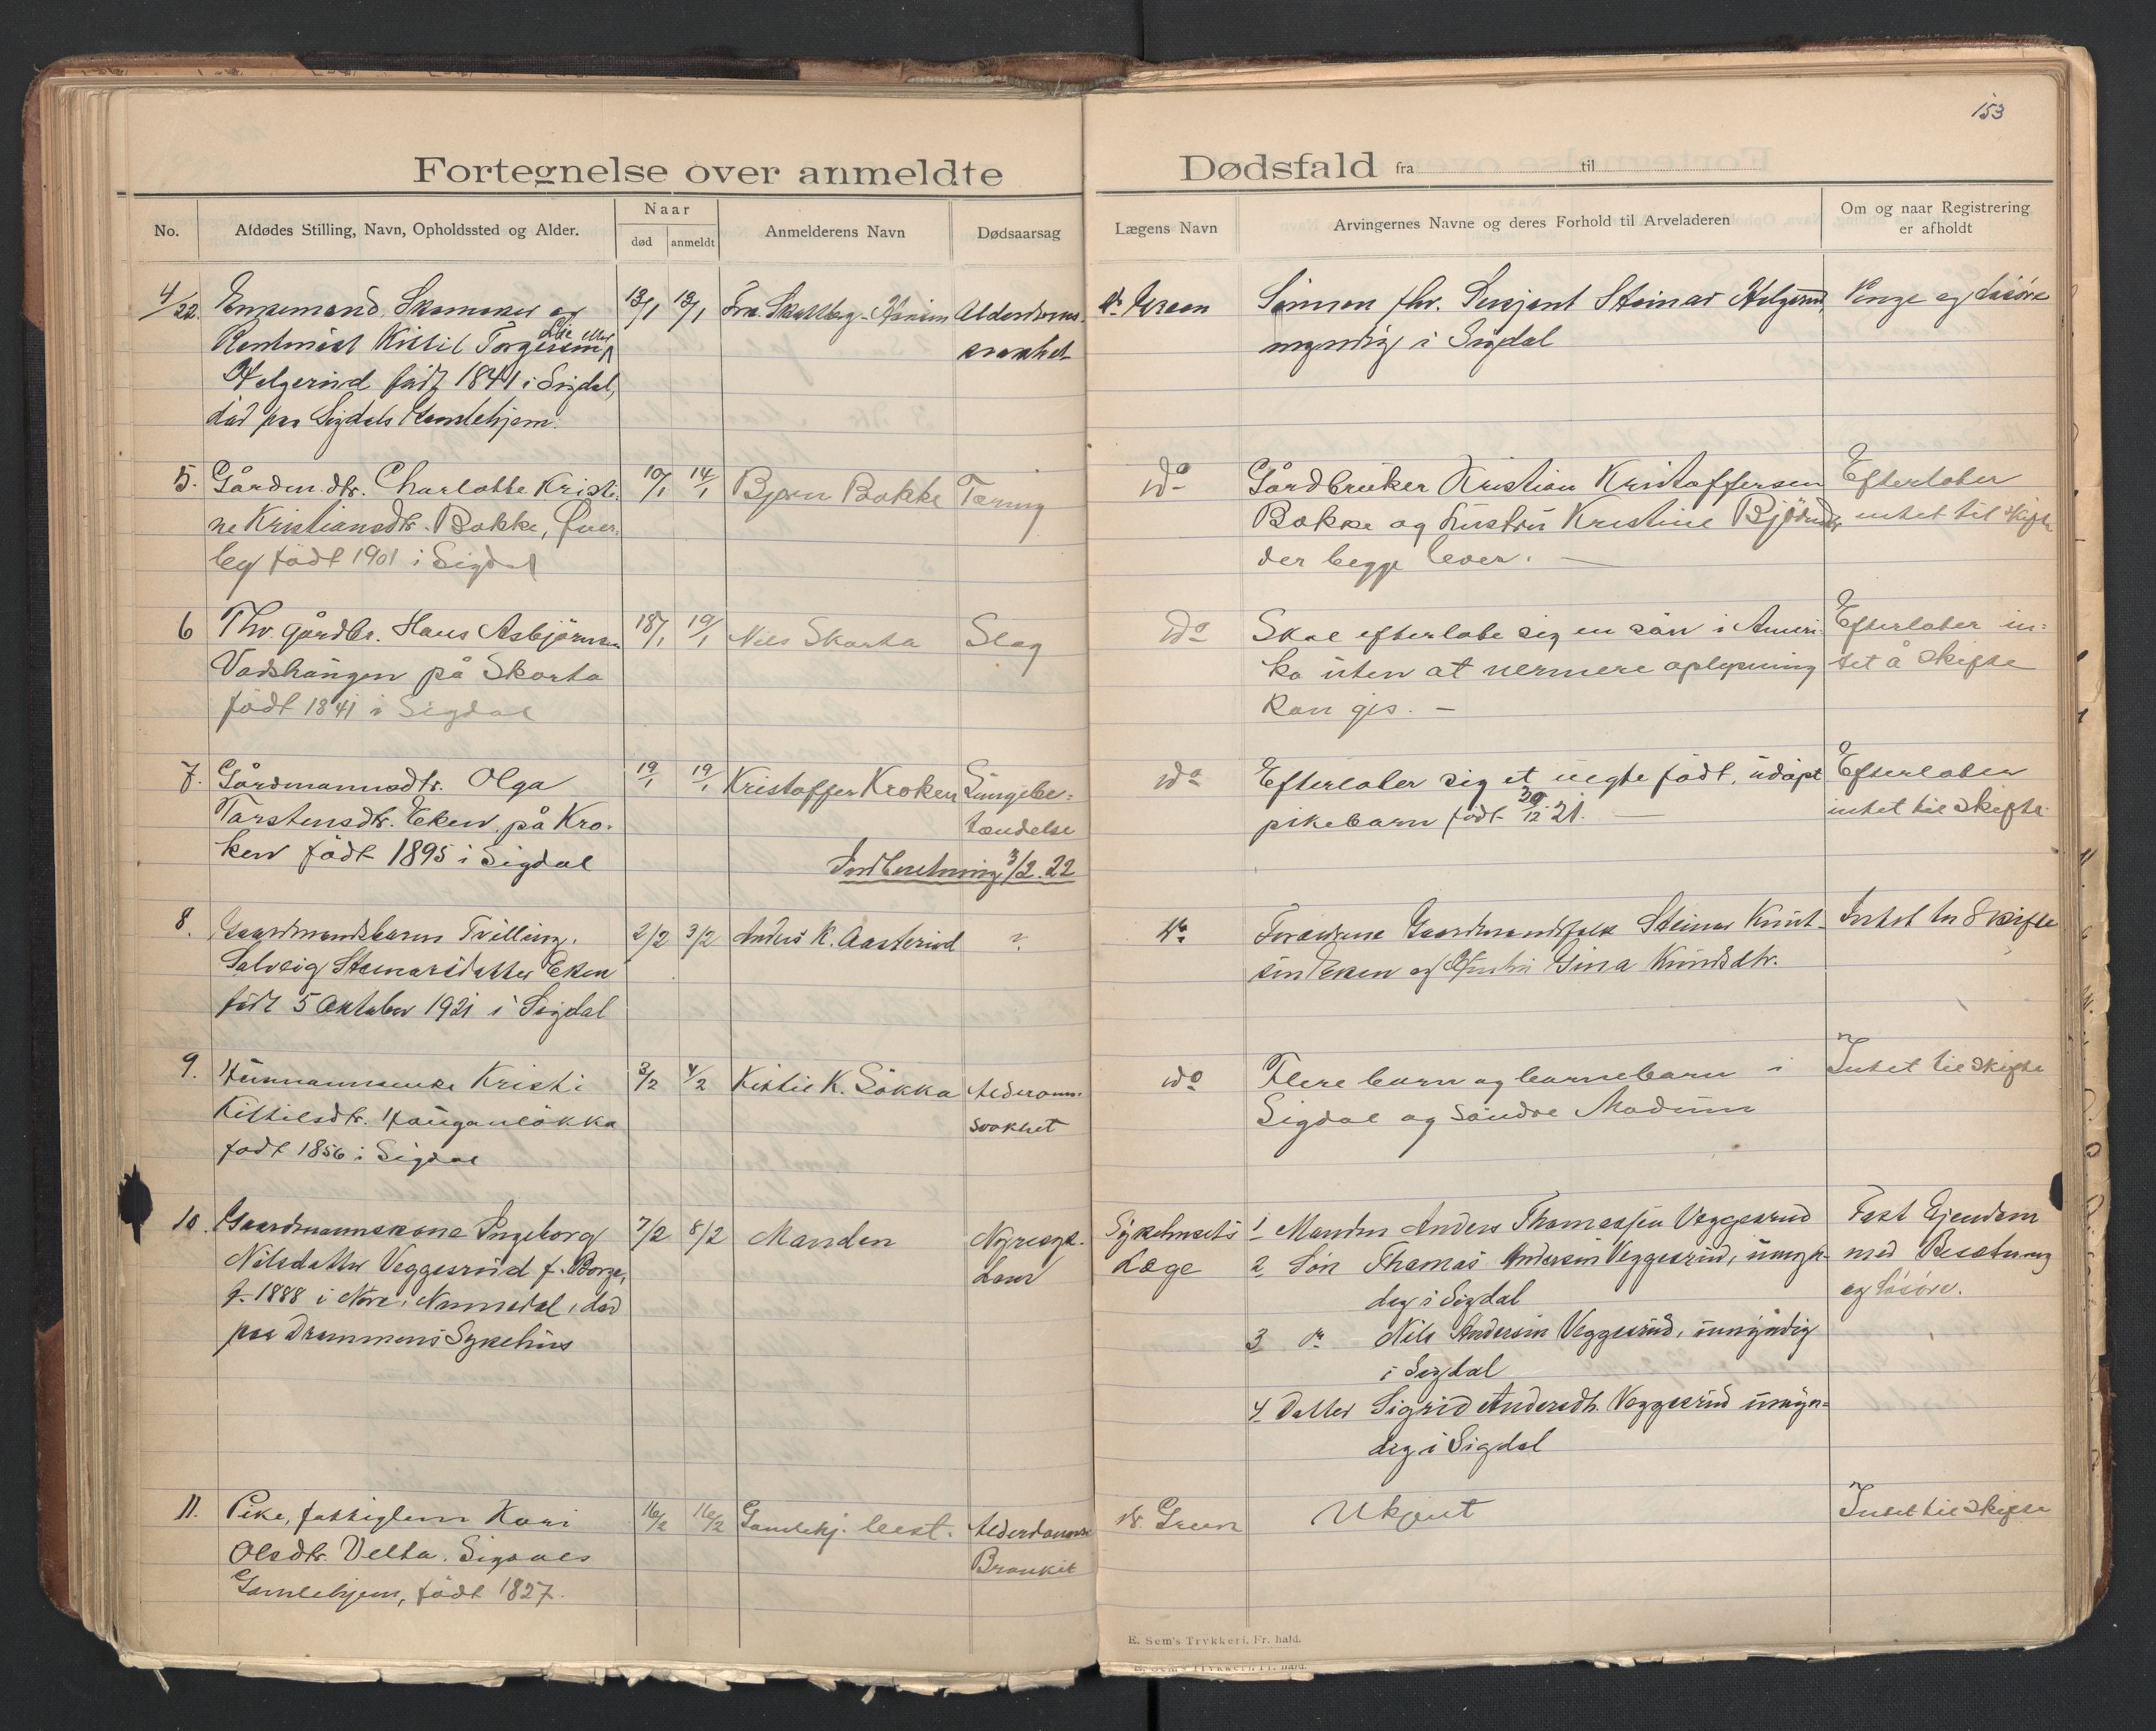 153
Fortegnelse over anmeldte Dødsfald fra til
No.
Afdødes Stilling, Navn, Opholdssted og Alder.
Naar
død anmeldt
Anmelderens Navn
Dødsaarsag
Lægens Navn
Arvingernes Navne og deres Forhold til Arveladeren
Om og naar Registrering
er afholdt
4/22. Enkemand, Skomaker og
Kittil Torgersen Lie eller
Helgerud født 1841 i Sigdal,
død paa Sigdals Gamlehjem.
13/1 13/1
Alderdoms-
svakhet
Dr. Green
Sønnen fhv. Sersjant Steinar Helgerud,
myndig i Sigdal
Penge og Løsøre
5. Gårdm.dtr. Charlotte Kristi-
ne Kristiansdtr. Bakke, Øver-
by født 1901 i Sigdal
10/1 14/1
Bjørn Bakke
Tæring
do
Gårdbruker Kristian Kristoffersen
Bakke og hustru Kristine Bjørnsdtr.
der begge lever. —
Efterlater
intet til skifte
6 Fhv. gårdbr. Hans Asbjørnsen
Vadshaugen på Skarta
født 1841 i Sigdal
18/1 19/1
Nils Skarta
Slag
do
Skal efterlate sig en søn i Ameri-
ka uten at nermere oplysning
kan gis. —
Efterlater in-
tet å skifte
7. Gårdmannsdtr. Olga
Torstensdtr. Eken på Kro-
ken født 1895 i Sigdal
19/1 19/1
Kristoffer Kroken
Lungebe-
tændelse
Indberetning 3/2.22
do
Efterlater sig et uegte født, udøpt
pikebarn født 29/12 21. —
Efterlater
intet til skifte.
8. Gaardmandsbarn Tvilling.
Solveig Steinarsdatter Eken
født 5 Oktober 1921 i Sigdal
2/2 3/2
Anders K. Aasterud
?
do
Forældrene Gaardmandsfolk Steinar Knut-
sen Eken og Hustru Gina Knudsdtr.
Intet til Skifte
9. Husmannsenke Kristi
Kittilsdtr. Hauganløkka
født 1856 i Sigdal
3/2 4/2
Kittil K. Løkka
Alderdoms-
svakhet
do
Flere barn og barnebarn i
Sigdal og Søndre Modum
Intet til skifte
10. Gaardmannskone Ingeborg
Nilsdatter Veggesrud f. Borge,
f. 1888 i Nore, Numedal, død
paa Drammens Sykehus
7/2 8/2
Manden
Nyresyk-
dom
Sykehusets
Læge
1 Manden Anders Thomassen Veggesrud
2 Søn Thomas Andersen Veggesrud, umyn-
dig i Sigdal
3 do Nils Andersen Veggesrud, umyndig
i Sigdal
4 Datter Sigrid Andersdtr. Veggesrud umyn-
dig i Sigdal
Fast Ejendom
med Besætning
og løsøre.
11. Pike, fattiglem Kari
Olsdtr. Velta. Sigdals
Gamlehjem, født 1827.
16/2 16/2
Gamlehj. best.
Alderdoms
Dr. Green
Ukjent
Intet til skifte
E. Sem's Trykkeri, Fr. hald.
E. Sem's Trykkeri, Fr. hald.